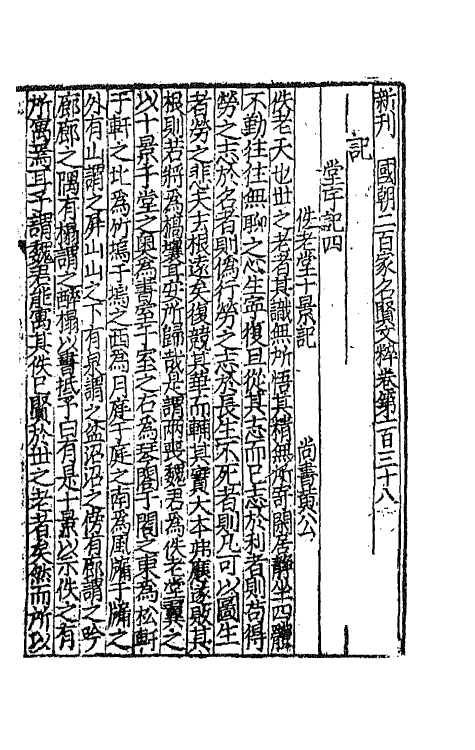 新刊　國朝二百家名賢文粹卷第一百三十八
記
堂亭記四
佚老堂十景記　尚書黄公
佚老天也世之老者其識無所悟其精無所奇閑居聯坐四體
不勤往往無聊之心生焉復且從其志而已志於利者則苟得
勞之志於名者則僞行勞之志於長生不死者則凡可以圖生
者勞之悲夫去根遠矣復競其華而輔其實大本弗應遂敗其
根則若將爲槁壤耳安所歸哉是謂兩喪魏君爲佚老堂翼之
以十景于堂之奥爲書室于室之右爲琴閣于閣之東爲松軒
于軒之北爲竹塢于塢之西爲月庭于庭之南爲風牖于牖之
外有山謂之屏山山之下有泉謂之盆沼沼之傍有廊謂之吟
廊廊之隅有榻謂之醉榻以書抵予曰有是十景以示佚之有
所寓焉耳予謂魏君能寓其佚已賢於世之老者矣然而所以